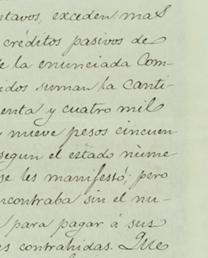 ntavos, exceden mas
créditos pasivos de
e la enunciada Com
idos suman la canti
enta y cuatro mil
y nueve pesos cincuen
segun el estado núme
se les manifestó; pero
ncontraba sin el nu
para pagar á sus
es contrahidas. Que